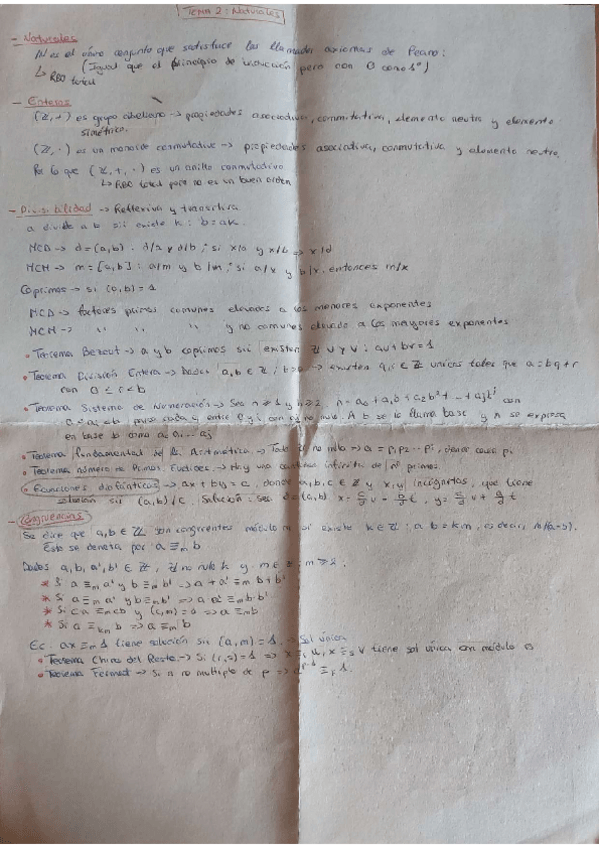 TEMA 2: Naturales
- Naturales
N es el único conjunto que satisface los llamados axiomas de Peano:
↳ RBO total (Igual que el principio de inducción pero con 0 como 1º)
- Enteros
(Z, +) es grupo abeliano → propiedades asociativa, conmutativa, elemento neutro y elemento
simétrico.
(Z, ·) es un monoide conmutativo → propiedades asociativa, conmutativa y elemento neutro.
Por lo que (Z, +, ·) es un anillo conmutativo
↳ RBO total pero no es un buen orden
- Divisibilidad → Reflexiva y transitiva
a divide a b sii existe k : b = ak.
MCD → d = (a,b) : d/a y d/b ; si x/a y x/b ⇒ x/d
MCM → m = [a,b] : a/m y b/m ; si a/x y b/x, entonces m/x
Coprimos → si (a,b) = 1
MCD → factores primos comunes elevados a los menores exponentes
MCM → " " " y no comunes elevado a los mayores exponentes
• Teorema Bezout → a y b coprimos sii existen u y v : au + bv = 1
• Teorema División Entera → Dados a,b ∈ Z / b>0 → existen q,r ∈ Z únicos tales que a = bq + r
con 0 ≤ r < b
• Teorema Sistema de Numeración → Sea n ≥ 1 y b ≥ 2, n = a₀ + a₁b + a₂b² + ... + ajb^j con
0 ≤ ai < b para cada i entre 0 y j con aj no nulo. A b se le llama base y n se expresa
en base b como a₀ a₁... aj
• Teorema fundamental de la Aritmética → Todo Z no nulo → a = p₁p₂...pi, donde cada pi
• Teorema número de Primos, Euclides → Hay una cantidad infinita de nº primos.
• Ecuaciones diofánticas → ax + by = c, donde a,b,c ∈ Z y x,y incógnitas, que tiene
solución sii (a,b)/c. Solución: sea d = (a,b) x = c/d u - b/d t, y = c/d v + a/d t
- Congruencias
Se dice que a,b ∈ Z son congruentes módulo m si existe k ∈ Z : a-b = km, es decir, m/(a-b).
Esto se denota por a ≡m b
Dados a, b, a', b' ∈ Z, Z no nulo k y m ∈ Z : m ≥ 2.
* Si a ≡m a' y b ≡m b' ⇒ a + a' ≡m b + b'
* Si a ≡m a' y b ≡m b' ⇒ a·a' ≡m b·b'
* Si ca ≡m cb y (c,m) = 1 ⇒ a ≡m b.
* Si a ≡km b ⇒ a ≡m b
Ec. ax ≡m 1 tiene solución sii (a,m) = 1. → Sol única
• Teorema Chino del Resto → Si (r,s) = 1 ⇒ x ≡r u, x ≡s v tiene sol única con módulo rs
• Teorema Fermat → Si n no multiplo de p ⇒ n^p-1 ≡p 1.